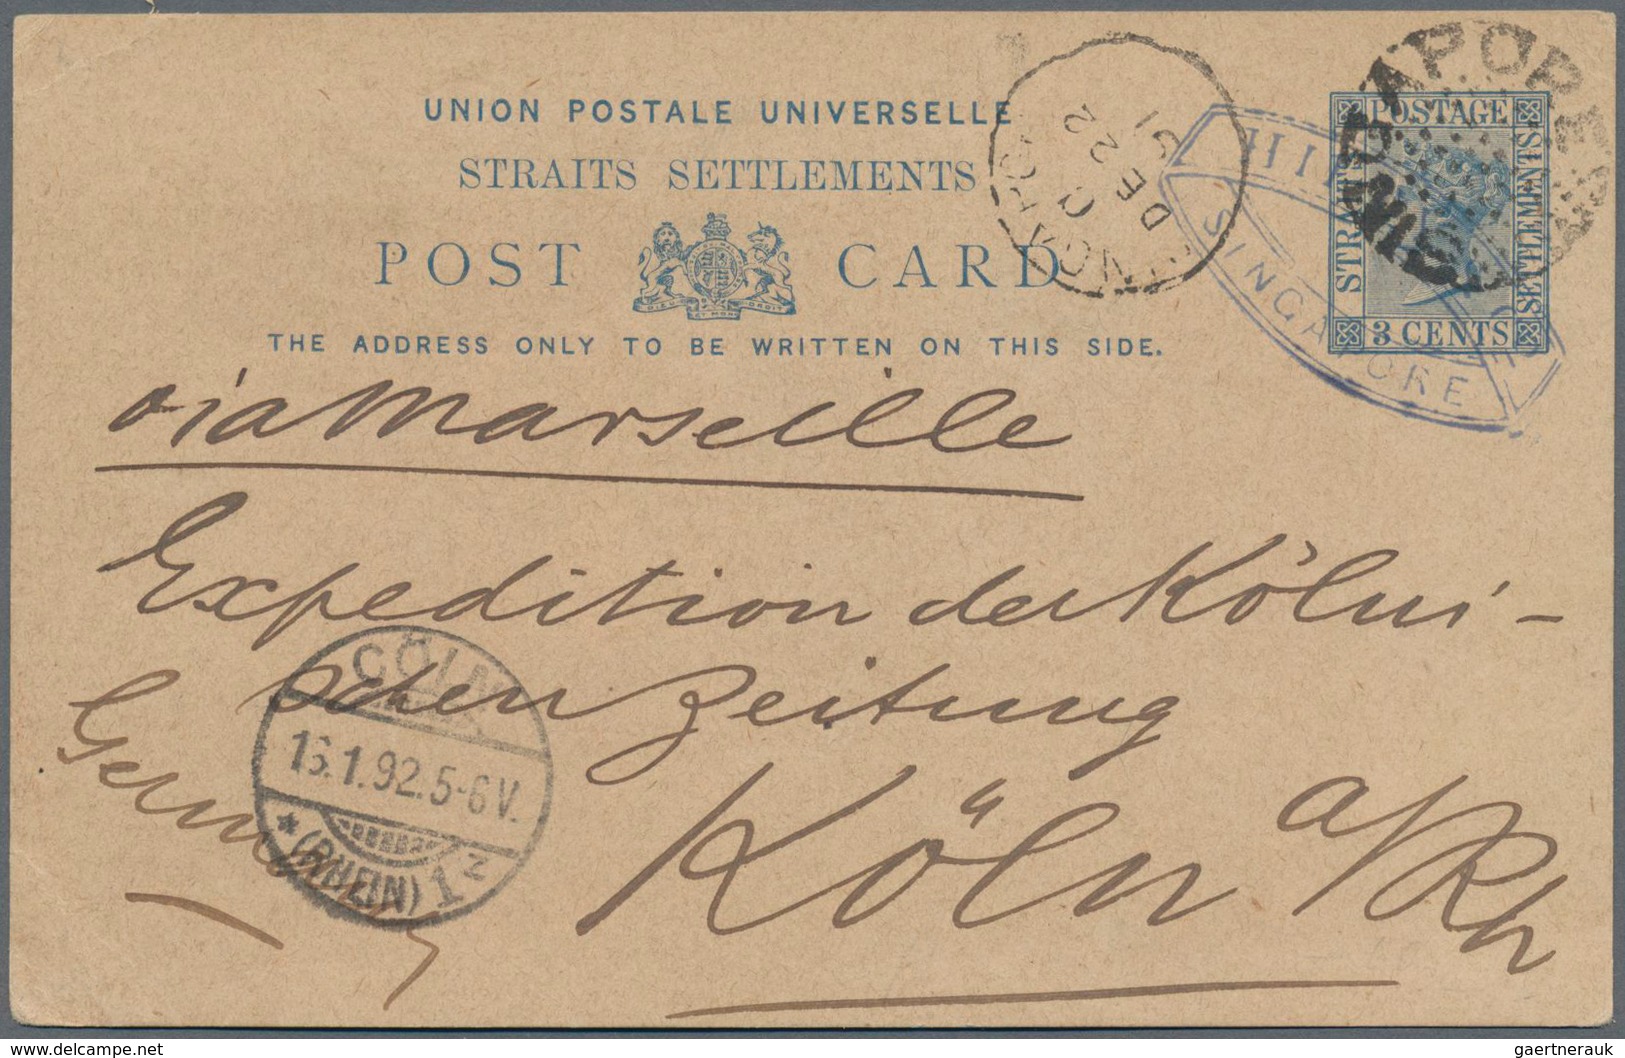 UNION POSTALE UNIVERSELLE
STRAITS SETTLEMENTS
POST CARD
DIEU ET MON DROIT
THE ADDRESS ONLY TO BE WRITTEN ON THIS SIDE.
DE 22
91
SINGAPORE
POSTAGE
STRAITS
SETTLEMENTS
3 CENTS
SINGAPORE
SINGAPORE
via Marseille
Expedition der Kölni-
schen Zeitung
Germany
Köln a/Rh
CÖLN
16.1.92.5-6V.
* (RHEIN) 1 z
delcampe.net
gaertnerauk